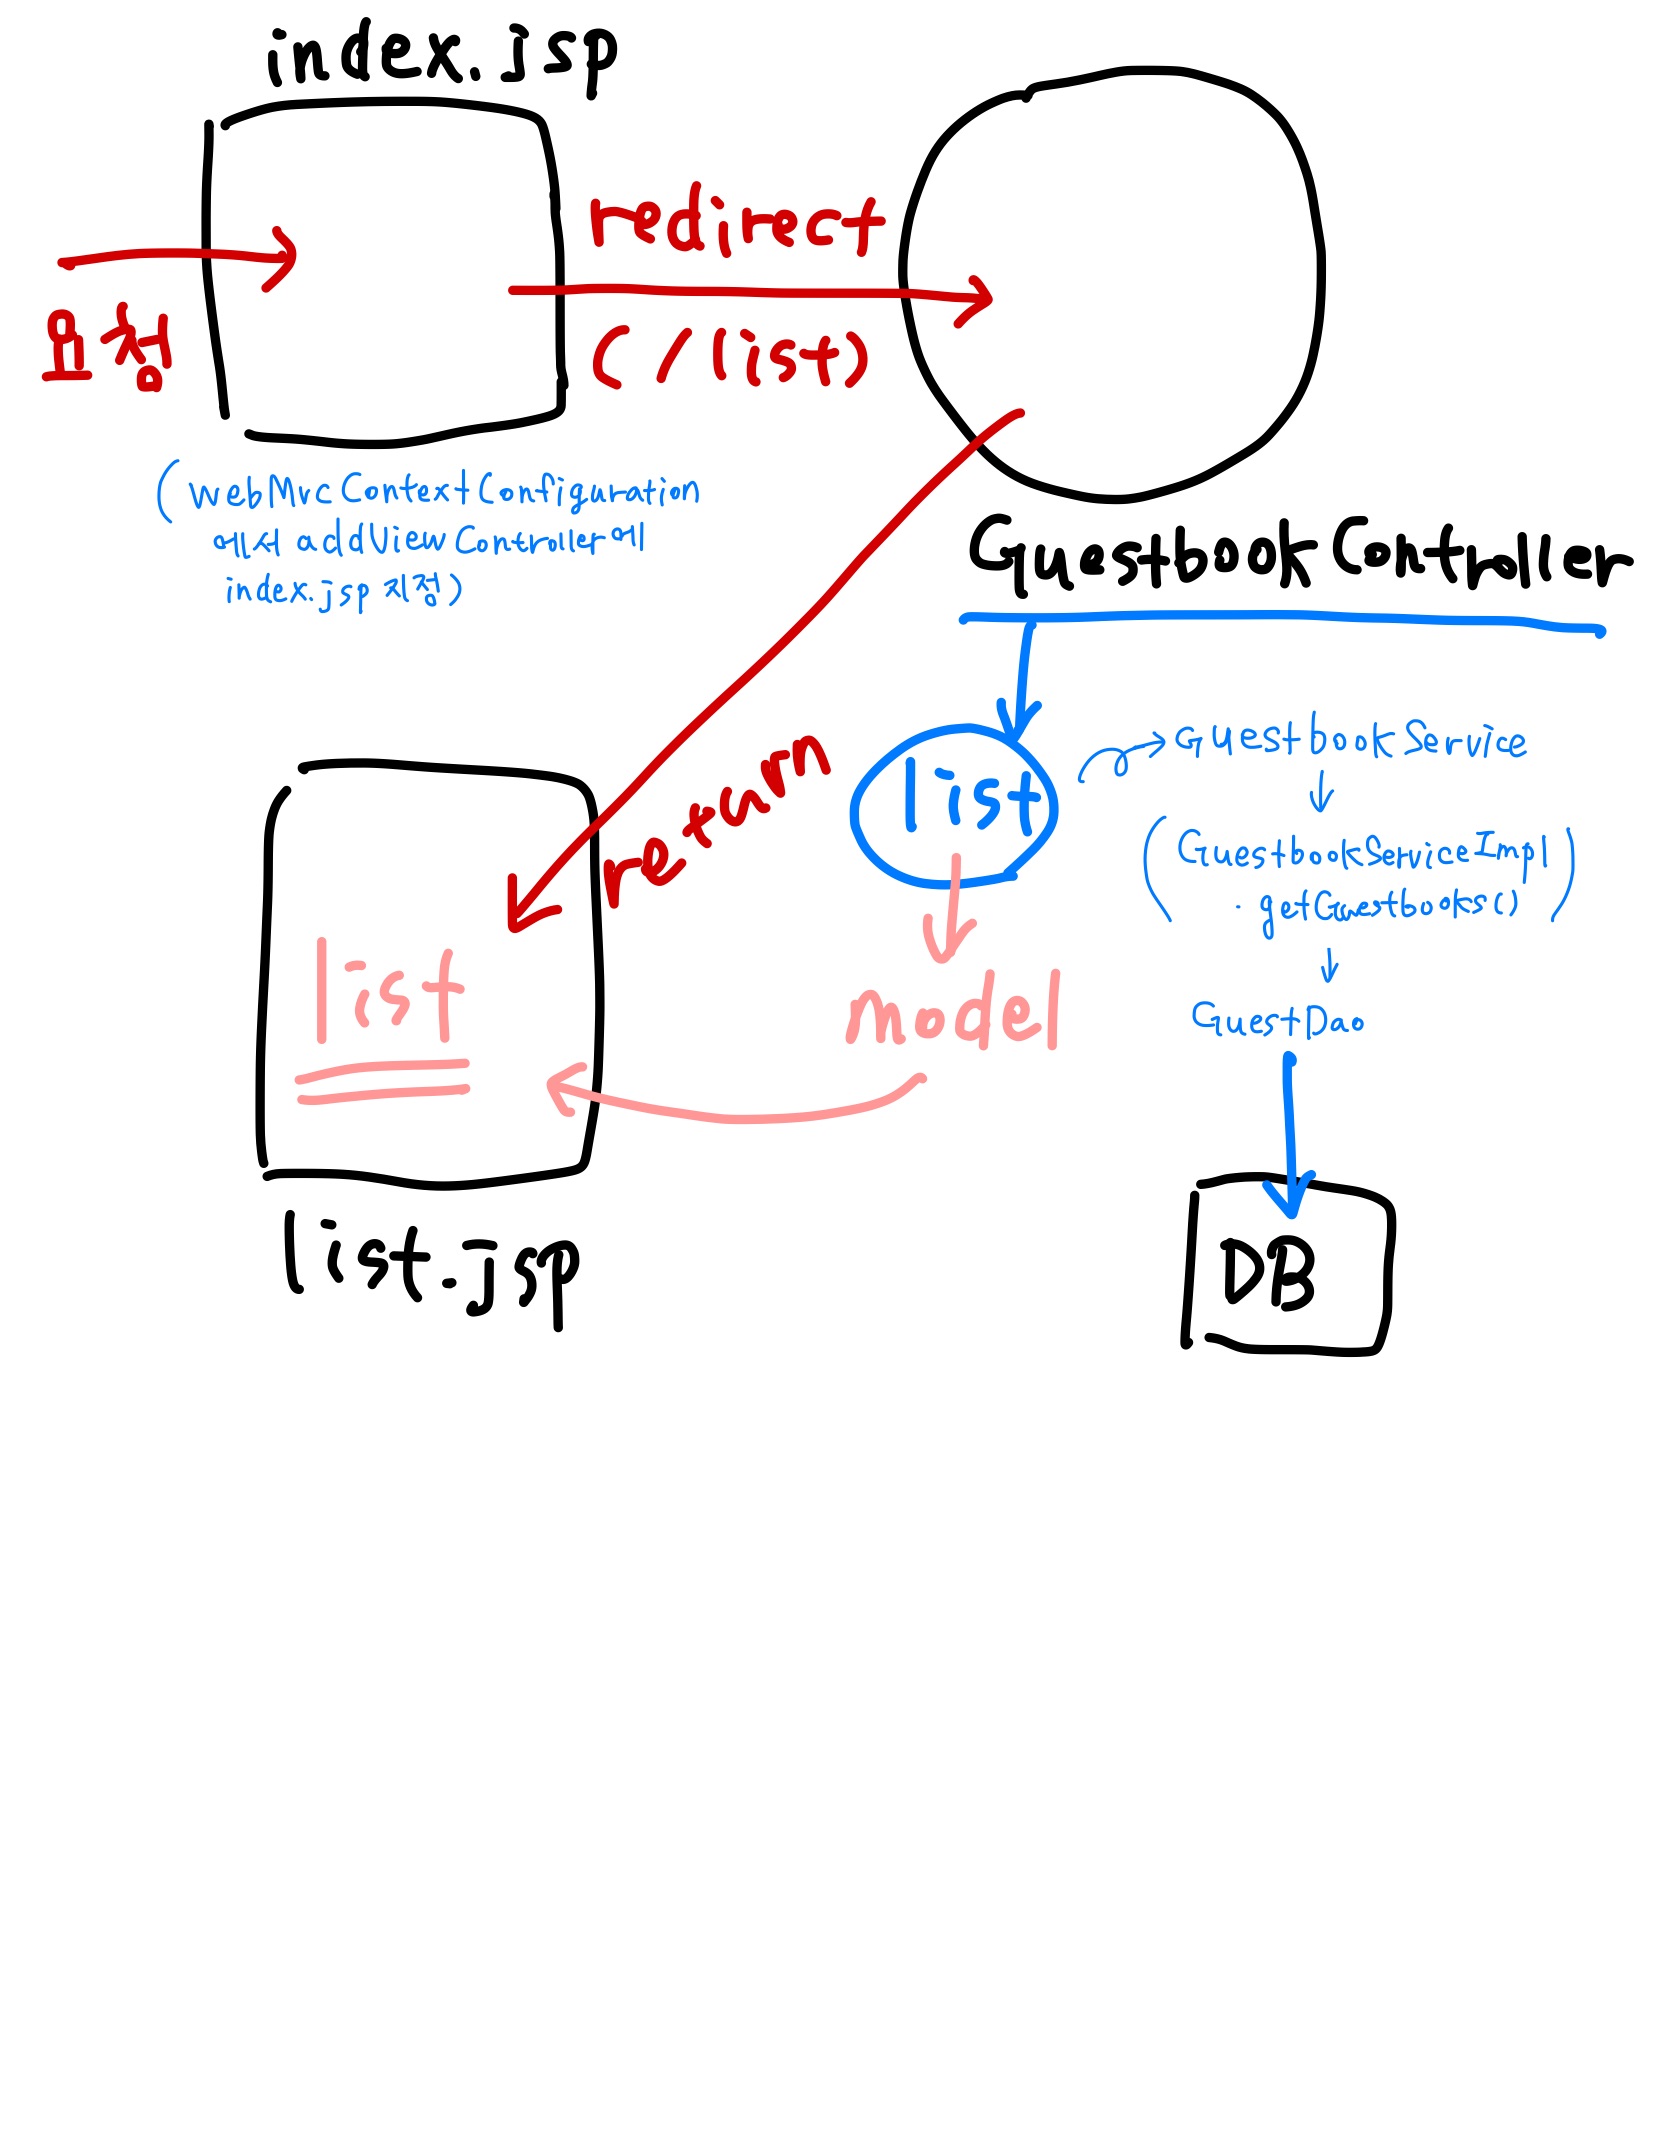 index.jsp
요청
redirect
(/list)
(WebMvcContextConfiguration
에서 addViewController에
index.jsp 지정)
GuestbookController
return
list
GuestbookService
(GuestbookServiceImpl
.getGuestbooks())
GuestDao
model
list
list.jsp
DB